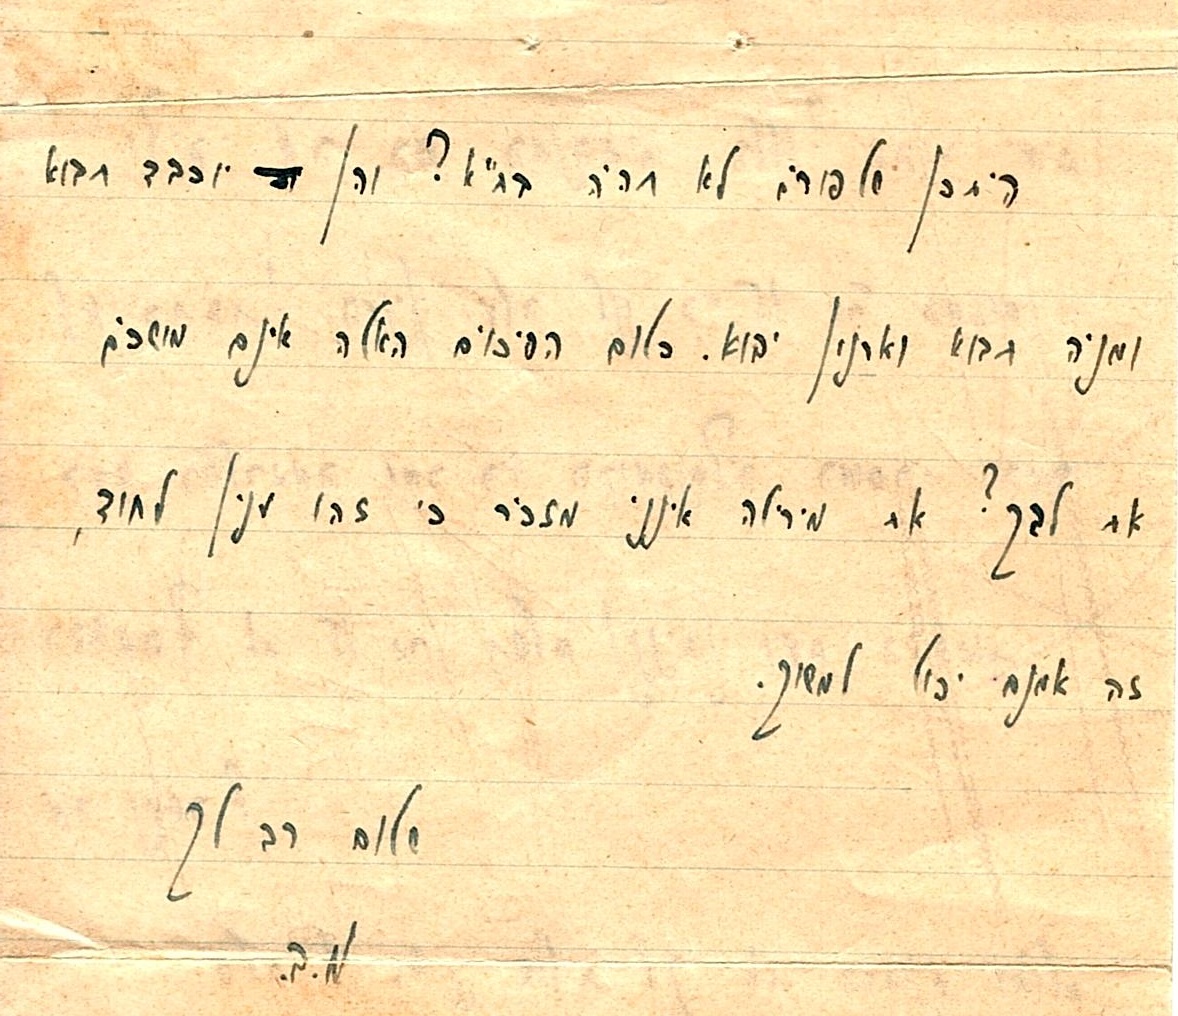 היתכן שלפורים לא תהיה בת"א? והן יוכבד תבוא
ומניה תבוא וארנון יבוא. כלום הסיכוים האלה אינם מושכים
את לבך? את מירילה אינני מזכיר כי זהו ענין לחוד,
זה אמנם יכול למשוך.
שלום רב לך
מ.ב.